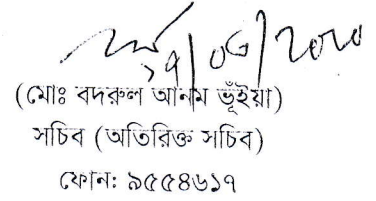 ১৭/০৬/২০২০
(মোঃ বদরুল আনম ভূঁইয়া)
সচিব (অতিরিক্ত সচিব)
ফোন: ৯৫৫৪৬১৭